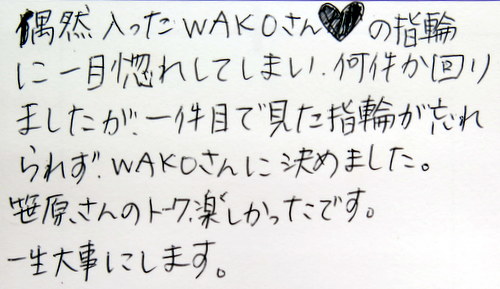 偶然入ったWAKOさん♥の指輪
に一目惚れしてしまい、何件か回り
ましたが、一件目で見た指輪が忘れ
られず、WAKOさんに決めました。
笹原さんのトーク、楽しかったです。
一生大事にします。